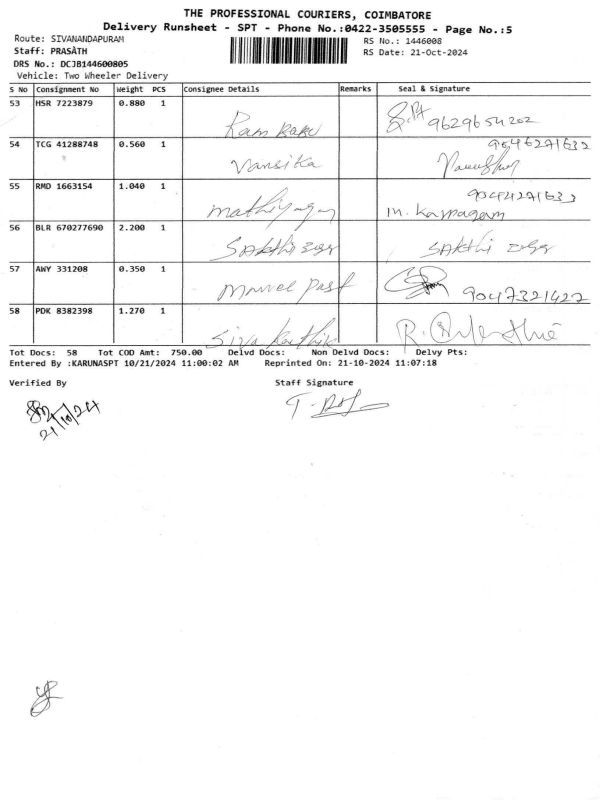 THE PROFESSIONAL COURIERS, COIMBATORE
Delivery Runsheet - SPT - Phone No.:0422-3505555 - Page No.:5
Route: SIVANANDAPURAM
RS No.: 1446008
Staff: PRASÀTH
RS Date: 21-Oct-2024
DRS No.: DCJB144600805
Vehicle: Two Wheeler Delivery
S No Consignment No Weight PCS Consignee Details Remarks Seal & Signature
53 HSR 7223879 0.880 1
Ram Babu 9629654202
54 TCG 41288748 0.560 1 9546271632
Vansika
55 RMD 1663154 1.040 1
m. Karpagam
56 BLR 670277690 2.200 1
Sakthi Sakthi
57 AWY 331208 0.350 1
9047321422
58 PDK 8382398 1.270 1
Siva Karthik
Tot Docs: 58 Tot COD Amt: 750.00 Delvd Docs: Non Delvd Docs: Delvy Pts:
Entered By :KARUNASPT 10/21/2024 11:00:02 AM Reprinted On: 21-10-2024 11:07:18
Verified By Staff Signature
21/10/24